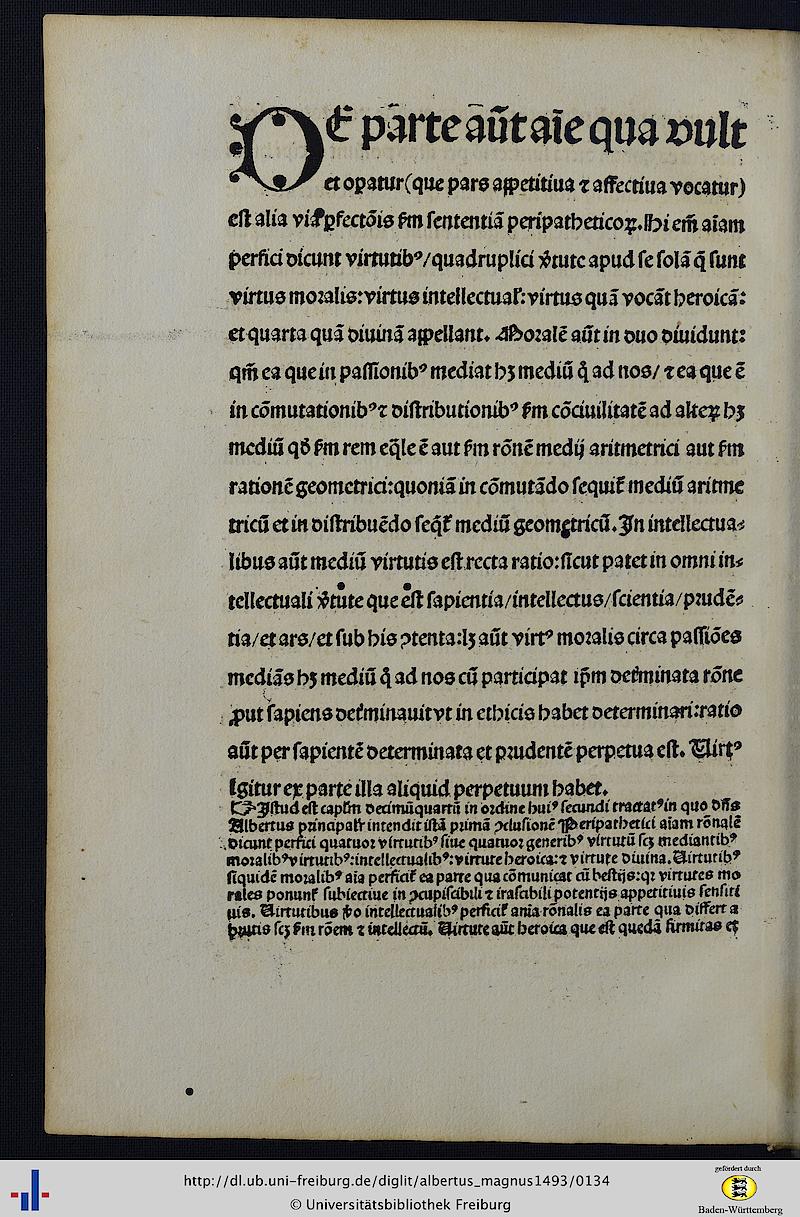 DE parte aūt aīe qua vult
et opatur (que pars appetitiua ⁊ affectiua vocatur)
est alia via ꝑfectōis ẜm sententiā peripatheticoꝝ. Hi em̄ aīam
perfici dicunt virtutibꝰ/quadruplici v̓tute apud se solā q̄ sunt
virtus moralis: virtus intellectual̓: virtus quā vocāt heroicā:
et quarta quā diuinā appellant. Moralē aūt in duo diuidunt:
qm̄ ea que in passionibꝰ mediat hꝫ mediū q̊ ad nos/ ⁊ ea que ē
in cōmutationibꝰ ⁊ distributionibꝰ ẜm cōciuilitatē ad alteꝝ hꝫ
mediū qd̓ ẜm rem eq̄le ē aut ẜm rōnē medij aritmetrici aut ẜm
rationē geometrici: quoniā in cōmutādo sequit̓ mediū aritme
tricū et in distribuēdo seq̄t̓ mediū geometricū. In intellectua⸗
libus aūt mediū virtutis est recta ratio: sicut patet in omni in⸗
tellectuali v̓tute que est sapientia/intellectus/scientia/prudē⸗
tia/et ars/et sub his ꝯtenta: lꝫ aūt virtꝰ moralis circa passiōes
mediās hꝫ mediū q̊ ad nos cū participat ip̄m det̓minata rōne
ꝓut sapiens det̓minauit vt in ethicis habet determinari: ratio
aūt per sapientē determinata et prudentē perpetua est. Uirtꝰ
igitur ex parte illa aliquid perpetuum habet.
☞ Istud est capl̓m decimūquartū in ordine huiꝰ secundi tractatꝰ in quo dn̄s
Albertus principal̓r intendit istā primā ꝯclusionē Peripathetici aīam rōnalē
dicunt perfici quatuor virtutibꝰ siue quatuor generibꝰ virtutū scꝫ mediantibꝰ
moralibꝰ virtutibꝰ: intellectualibꝰ: virtute heroica: ⁊ virtute diuina. Uirtutibꝰ
siquidē moralibꝰ aīa perficit̓ ea parte qua cōmunicat cū bestijs: qꝛ virtutes mo
rales ponunt̓ subiectiue in ꝯcupiscibili ⁊ irascibili potentijs appetitiuis sensiti
uis. Uirtutibus v̓o intellectualibꝰ perficit̓ anīa rōnalis ea parte qua differt a
brutis scꝫ ẜm rōem ⁊ intellectū. Uirtute aūt heroica que est quedā firmitas ex
http://dl.ub.uni-freiburg.de/diglit/albertus_magnus1493/0134
© Universitätsbibliothek Freiburg
gefördert durch
Baden-Württemberg